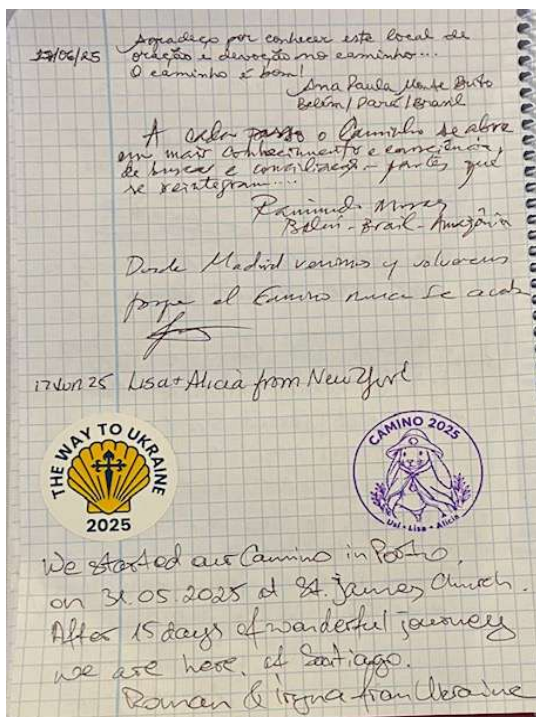 17/06/25 Agradeço por conhecer este local de
oração e devoção no caminho...
O caminho é bom!
Ana Paula Monte Brito
Belém/Pará/Brasil
A cada passo o Caminho se abre
em mais conhecimento e consciência,
de busca e conciliação - partes que
se reintegram....
Raimundo Moraes
Belém - Brasil - Amazônia
Desde Madrid venimos y volvemos
porque el Camino nunca se acaba
17 Jun 25 Lisa + Alicia from New York
THE WAY TO UKRAINE
2025
CAMINO 2025
Lisa • Alicia
We started our Camino in Porto,
on 31.05.2025 at St. James Church.
After 15 days of wonderful journey
we are here, at Santiago.
Roman & Iryna from Ukraine